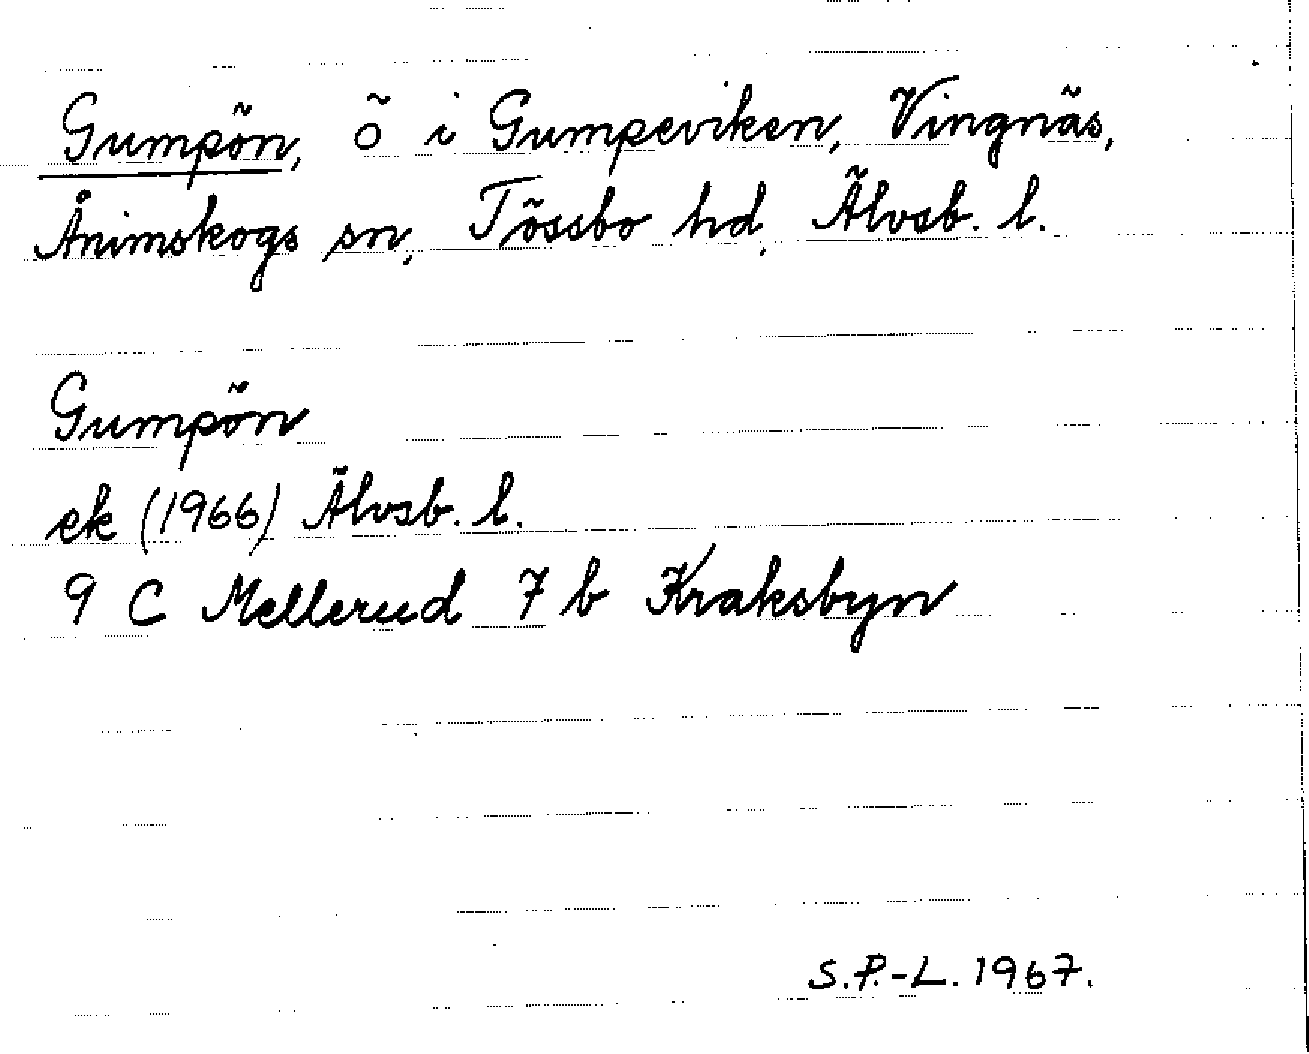 Gumpön, ö i Gumpeviken, Vingnäs,
Ånimskogs sn, Tössbo hd, Älvsb. l.
Gumpön
ek (1966) Älvsb. l.
9 C Mellerud 7 b Kraksbyn
S.P.-L. 1967.